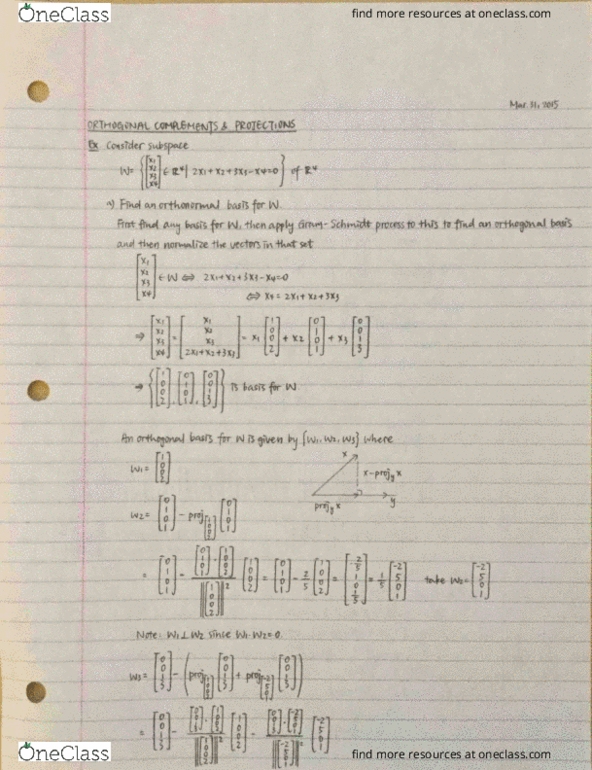 OneClass find more resources at oneclass.com
Mar. 31, 2015
ORTHOGONAL COMPLEMENTS & PROJECTIONS
Ex Consider subspace
W = { [x1 x2 x3 x4] ∈ R⁴ | 2x1+x2+3x3-x4=0 } of R⁴
a) Find an orthonormal basis for W.
First find any basis for W, then apply Gram-Schmidt process to this to find an orthogonal basis
and then normalize the vectors in that set
[x1 x2 x3 x4] ∈ W ⇔ 2x1+x2+3x3-x4=0
⇔ x4 = 2x1+x2+3x3
⇒ [x1 x2 x3 x4] = [x1 x2 x3 2x1+x2+3x3] = x1 [1 0 0 2] + x2 [0 1 0 1] + x3 [0 0 1 3]
⇒ { [1 0 0 2], [0 1 0 1], [0 0 1 3] } is basis for W.
An orthogonal basis for W is given by {W1, W2, W3} where
W1 = [1 0 0 2]
x
x-proj_y x
proj_y x
y
W2 = [0 1 0 1] - proj_[1 0 0 2] [0 1 0 1]
= [0 1 0 1] - ([0 1 0 1] · [1 0 0 2]) / ||[1 0 0 2]||² [1 0 0 2] = [0 1 0 1] - 2/5 [1 0 0 2] = [-2/5 1 0 1/5] = 1/5 [-2 5 0 1] take W2 = [-2 5 0 1]
Note: W1 ⊥ W2 since W1 · W2 = 0.
W3 = [0 0 1 3] - ( proj_[1 0 0 2] [0 0 1 3] + proj_[-2 5 0 1] [0 0 1 3] )
= [0 0 1 3] - ([0 0 1 3] · [1 0 0 2]) / ||[1 0 0 2]||² [1 0 0 2] - ([0 0 1 3] · [-2 5 0 1]) / ||[-2 5 0 1]||² [-2 5 0 1]
OneClass find more resources at oneclass.com